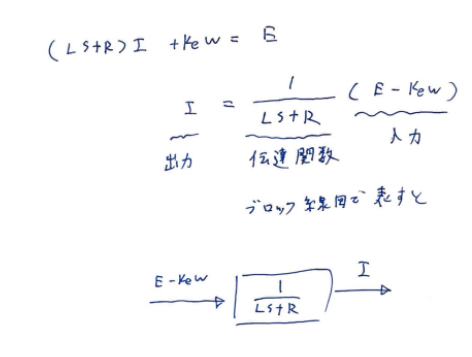 (LS+R)I + Keω = E
I = 1/(LS+R) (E - Keω)
出力 伝達関数 入力
ブロック線図で表すと
E-Keω 1/(LS+R) I